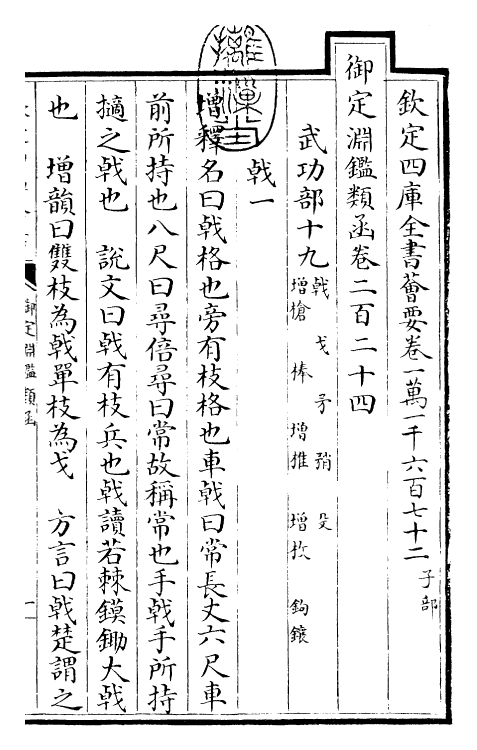 欽定四庫全書薈要卷一萬一千六百七十二 子部
御定淵鑑類函卷二百二十四
武功部十九 戟 戈 矛 矟 殳
增槍 棒 增椎 增杸 鉤鑲
戟一
增釋名曰戟格也旁有枝格也車戟曰常長丈六尺車
前所持也八尺曰尋倍尋曰常故稱常也手戟手所持
擿之戟也 說文曰戟有枝兵也戟讀若棘鏌鋤大戟
也 增韻曰雙枝為戟單枝為戈 方言曰戟楚謂之
御定淵鑑類函
一